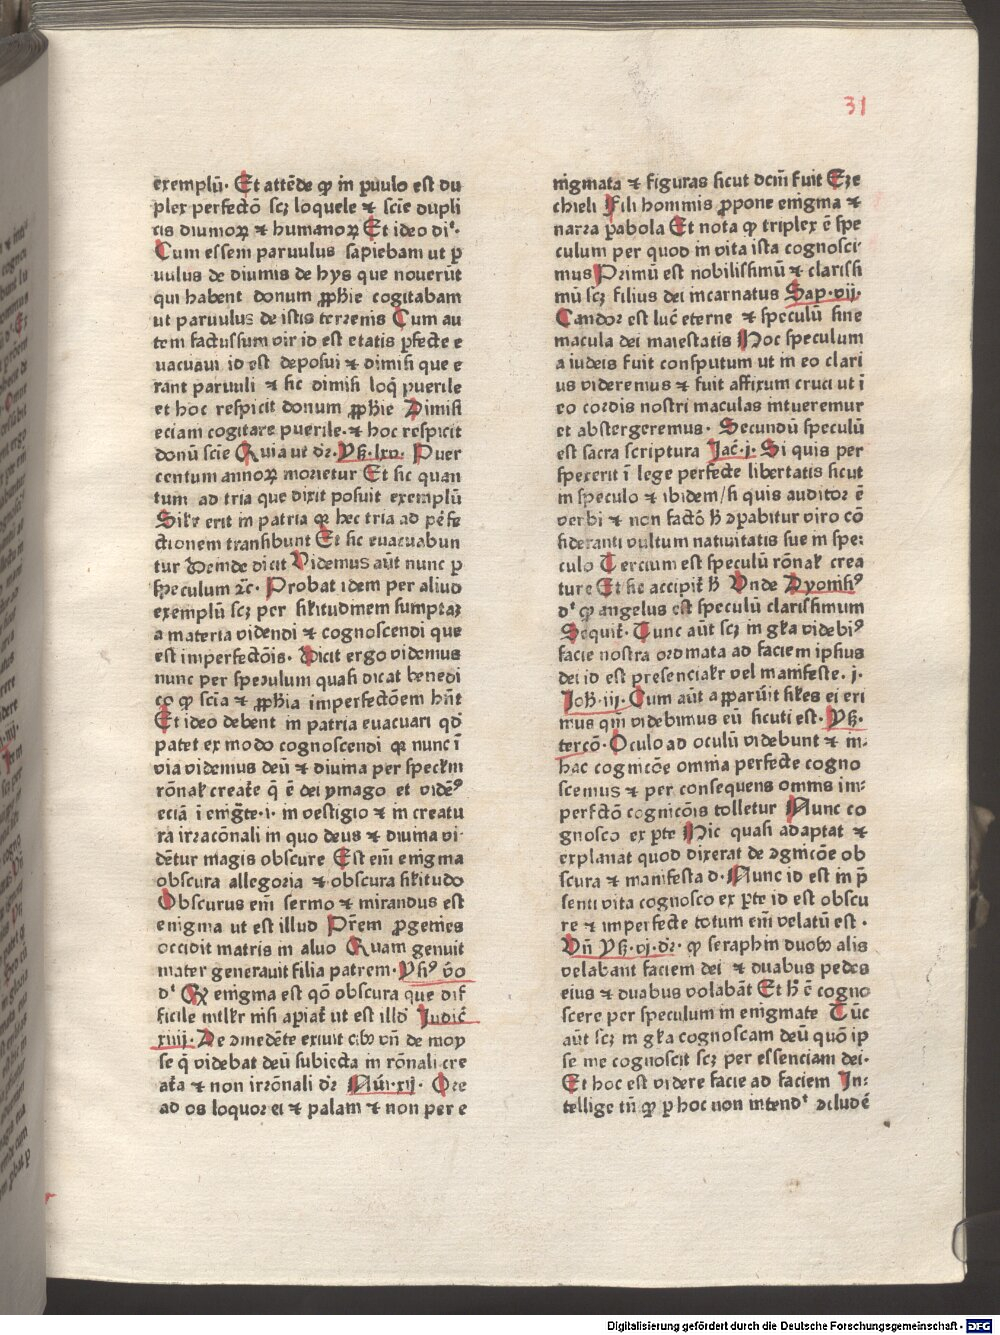 31
exemplū. Et attēde ꝙ in ꝑuulo est du
plex perfectō scꝫ loquele ⁊ scīe dupli
cis diuinoꝝ ⁊ humanoꝝ Et ideo di᷑.
Cum essem paruulus sapiebam ut ꝑ
uulus de diuinis de hys que nouerūt
qui habent donum ꝓphīe cogitabam
ut paruulus de istis terrenis Cum au
tem factus sum vir id est etatis ꝑfecte e
uacuaui id est deposui ⁊ dimisi que e
rant paruuli ⁊ sic dimisi loq̄ puerile
et hoc respicit donum ꝓphīe Dimisi
eciam cogitare puerile. ⁊ hoc respicit
donū scīe Quia ut dr̄. Yß. lxv. Puer
centum annoꝝ morietur Et sic quan
tum ad tria que dixit posuit exemplū
Silr̄ erit in patria qꝛ hec tria ad ꝑfe
ctionem transibunt Et sic euacuabun
tur Deinde dicit Videmus aūt nunc ꝑ
speculum ⁊c̄. Probat idem per aliud
exemplū scꝫ per silitudinem sumptaꝫ
a materia videndi ⁊ cognoscendi que
est imperfectōis. Dicit ergo videmus
nunc per speculum quasi dicat benedi
co ꝙ scīa ⁊ ꝓphīa imperfectōem hn̄t
Et ideo debent in patria euacuari qd̄
patet ex modo cognoscendi qꝛ nunc ī
via videmus deū ⁊ diuina per speclm̄
rōnal̄ create q̄ ē dei ymago et vidēꝰ
eciā ī enigᷓte .i. in vestigio ⁊ in creatu
ra irracōnali in quo deus ⁊ diuina vi
dētur magis obscure Est em̄ enigma
obscura allegoria ⁊ obscura silitudo
Obscurus em̄ sermo ⁊ mirandus est
enigma ut est illud Prēm ꝓgenies
occidit matris in aluo Quam genuit
mater generauit filia patrem. Yßꝰ v̄o
d᷑ Qꝫ enigma est qō obscura que dif
ficile intllr̄ nisi aꝑiat᷑ ut est illd̄ Judic̄
xiiij. De ꝯmedēte exiuit cibꝰ vn̄ de moy
se q̄ videbat deū subiecta in rōnali cre
at̄a ⁊ non irrōnali dr̄ Nūi. xij. Ore
ad os loquor ei ⁊ palam ⁊ non per e
nigmata ⁊ figuras sicut dcm̄ fuit Eze
chieli Fili hominis ꝓpone enigma ⁊
narra ꝑabola Et nota ꝙ triplex ē spe
culum per quod in vita ista cognosci
mus Primū est nobilissimū ⁊ clarissi
mū scꝫ filius dei incarnatus Sap. vij.
Candor est luc̄ eterne ⁊ speculū sine
macula dei maiestatis Hoc speculum
a iudeis fuit consputum ut in eo clari
us videremus ⁊ fuit affixum cruci ut ī
eo cordis nostri maculas intueremur
et abstergeremus. Secundū speculū
est sacra scriptura Jac̄. j. Si quis per
spexerit ī lege perfecte libertatis sicut
in speculo ⁊ ibidem / si quis auditor ē
verbi ⁊ non factō h̄ ꝯpabitur viro cō
sideranti vultum natiuitatis sue in spe
culo Tercium est speculū rōnal̄ crea
ture Et sic accipit᷑ h̄ Unde Dyonisiꝰ
d᷑ ꝙ angelus est speculū clarissimum
Sequit᷑. Tunc aūt scꝫ in gl̄a videbiꝰ
facie nostra ordinata ad faciem ipsius
dei id est presencialr̄ vel manifeste. j.
Joh̄. iij. Cum aūt apparūit siles ei eri
mus qm̄ videbimus eū sicuti est. Yß.
tercō. Oculo ad oculū videbunt ⁊ in
hac cognicōe omnia perfecte cogno
scemus ⁊ per consequens omnis im
perfctō cognicōis tolletur Nunc co
gnosco ex ꝑte Hic quasi adaptat ⁊
explanat quod dixerat de ꝯgnicōe ob
scura ⁊ manifesta d. Nunc id est in p̄
senti vita cognosco ex ꝑte id est obscu
re ⁊ imperfecte totum em̄ velatū est.
Un̄ Yß. vj. dr̄. ꝙ seraphin duobꝰ alis
velabant faciem dei ⁊ duabus pedes
eius ⁊ duabus volabāt Et h̄ ē cogno
scere per speculum in enigmate Tūc
aūt scꝫ in gl̄a cognoscam deū quō ip
se me cognoscit scꝫ per essenciam dei.
Et hoc est videre facie ad faciem In
tellige tn̄ ꝙ ꝑ hoc non intend᷑ ꝯcludē
Digitalisierung gefördert durch die Deutsche Forschungsgemeinschaft - DFG